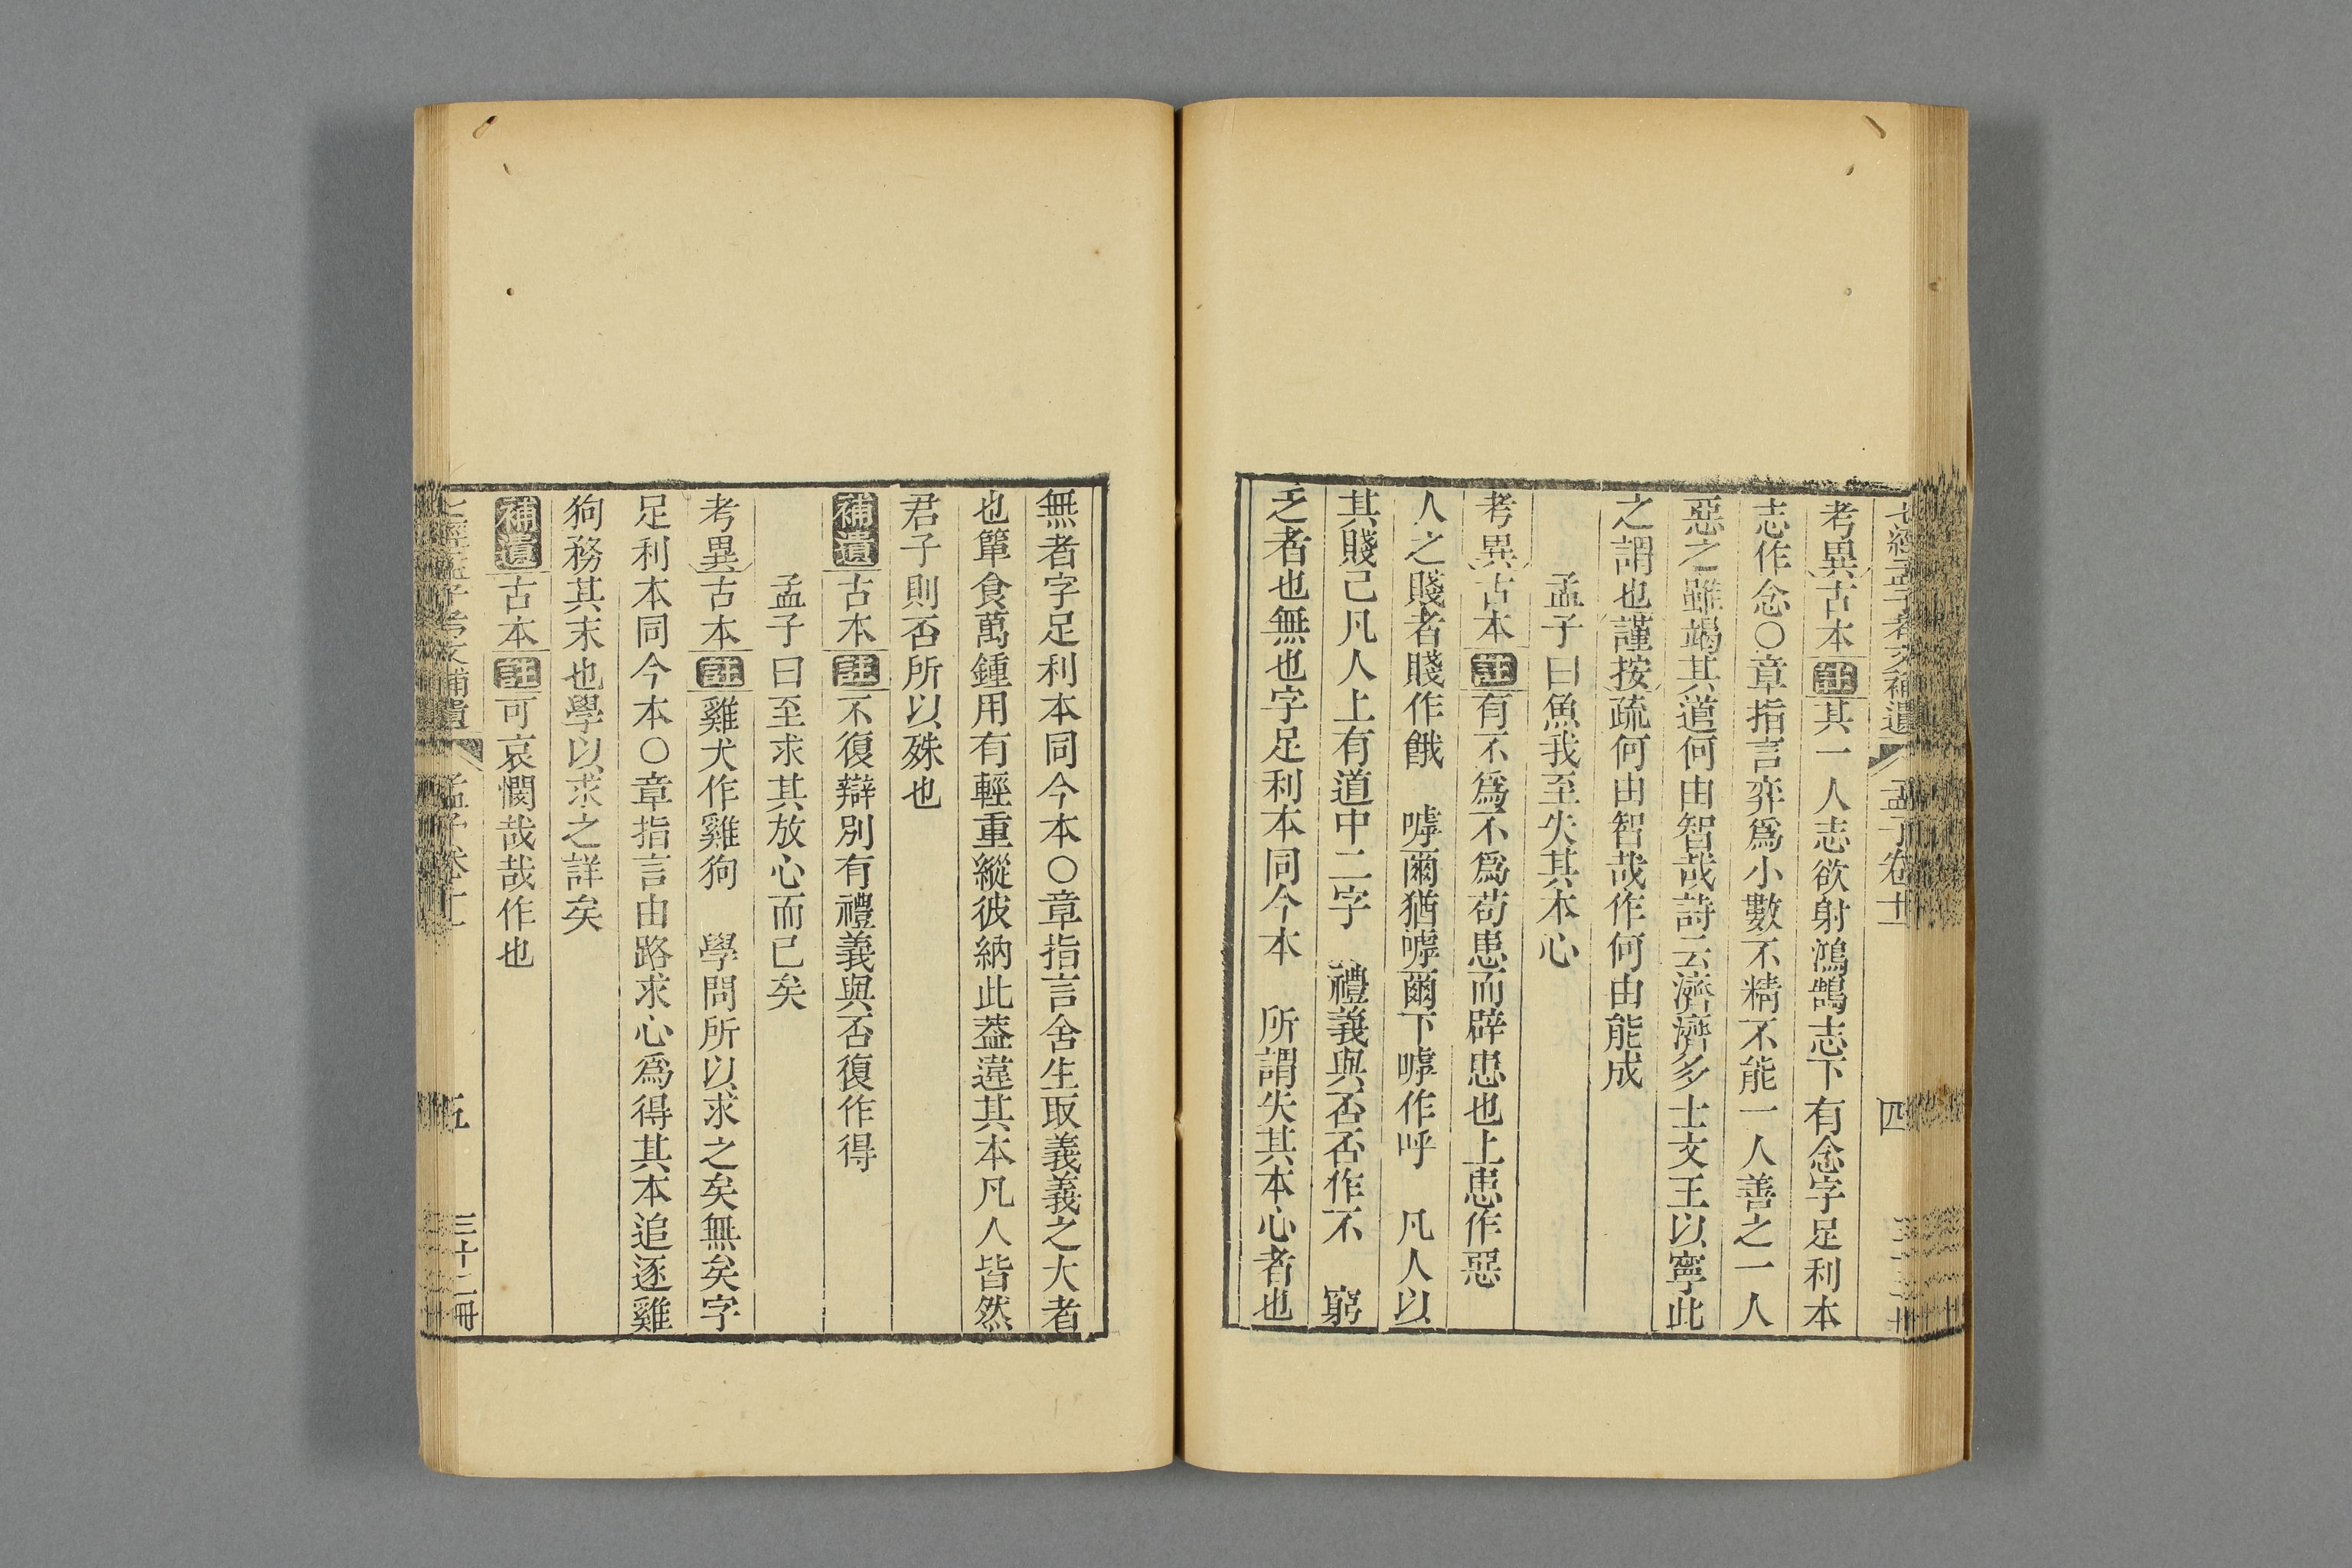 七經孟子考文補遺 孟子卷十一 四
考異古本註其一人志欲射鴻鵠志下有念字足利本
志作念○章指言弈爲小數不精不能一人善之一人
惡之雖竭其道何由智哉詩云濟濟多士文王以寧此
之謂也謹按疏何由智哉作何由能成
孟子曰魚我至失其本心
考異古本註有不爲不爲苟患而辟患也上患作惡
人之賤者賤作餓 嘑爾猶嘑爾下嘑作呼 凡人以
其賤己凡人上有道中二字 禮義與否否作不 窮
乏者也無也字足利本同今本 所謂失其本心者也
無者字足利本同今本○章指言舍生取義義之大者
也簞食萬鍾用有輕重縱彼納此葢違其本凡人皆然
君子則否所以殊也
補遺古本註不復辯別有禮義與否復作得
孟子曰至求其放心而已矣
考異古本註雞犬作雞狗 學問所以求之矣無矣字
足利本同今本○章指言由路求心爲得其本追逐雞
狗務其末也學以求之詳矣
補遺古本註可哀憫哉哉作也
七經孟子考文補遺 孟子卷十一 五 三十二冊